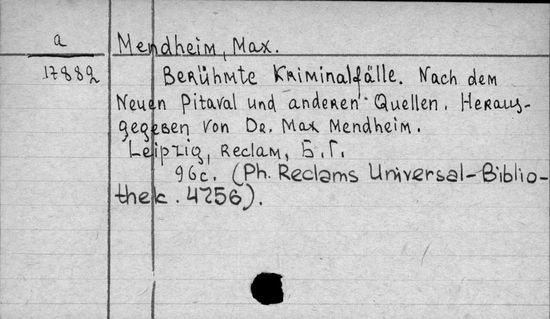 a
17882
Mendheim, Max.
Berühmte Kriminalfälle. Nach dem
Neuen Pitaval und anderen Quellen. Heraus-
gegeben von Dr. Max Mendheim.
Leipzig, Reclam, Б.Г.
96с. (Ph. Reclams Universal-Biblio-
thek. 4256).